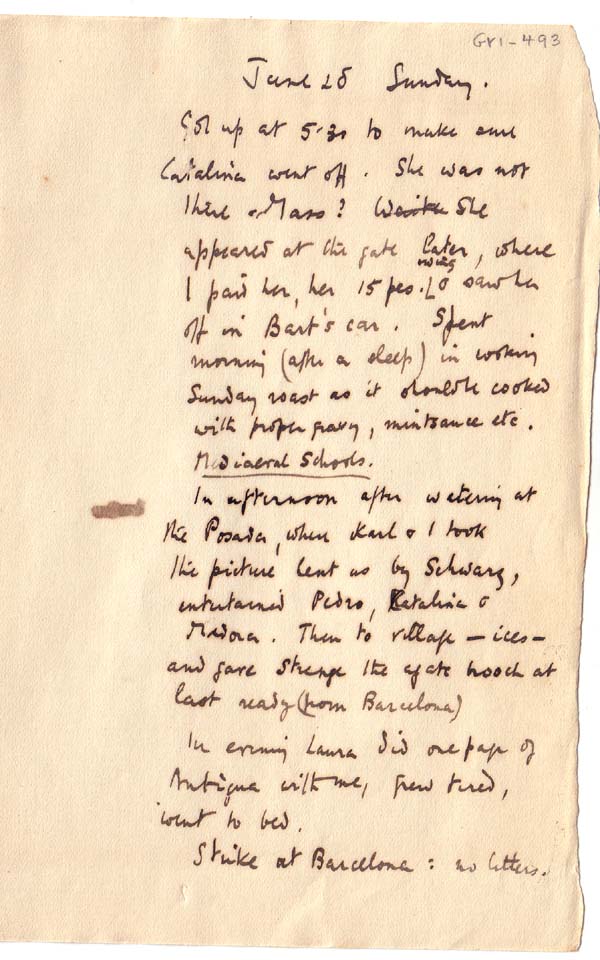 Gri-493
June 28 Sunday.
Got up at 5.30 to make sure
Catalina went off. She was not
there - Mass? She
appeared at the gate later, where
I paid her, her 15 pes. & saw her
off in Bart's car. Spent
morning (after a sleep) in cooking
Sunday roast as it should be cooked
with proper gravy, mintsauce etc.
Mediaeval Schools.
In afternoon after watering at
the Posada, when Karl & I took
the picture lent us by Schwarz,
entertained Pedro, Catalina &
Medora. Then to village — ices —
and gave Strenge the agate brooch at
last ready (from Barcelona)
In evening Laura did one page of
Antigua with me, grew tired,
went to bed.
Strike at Barcelona : no letters.